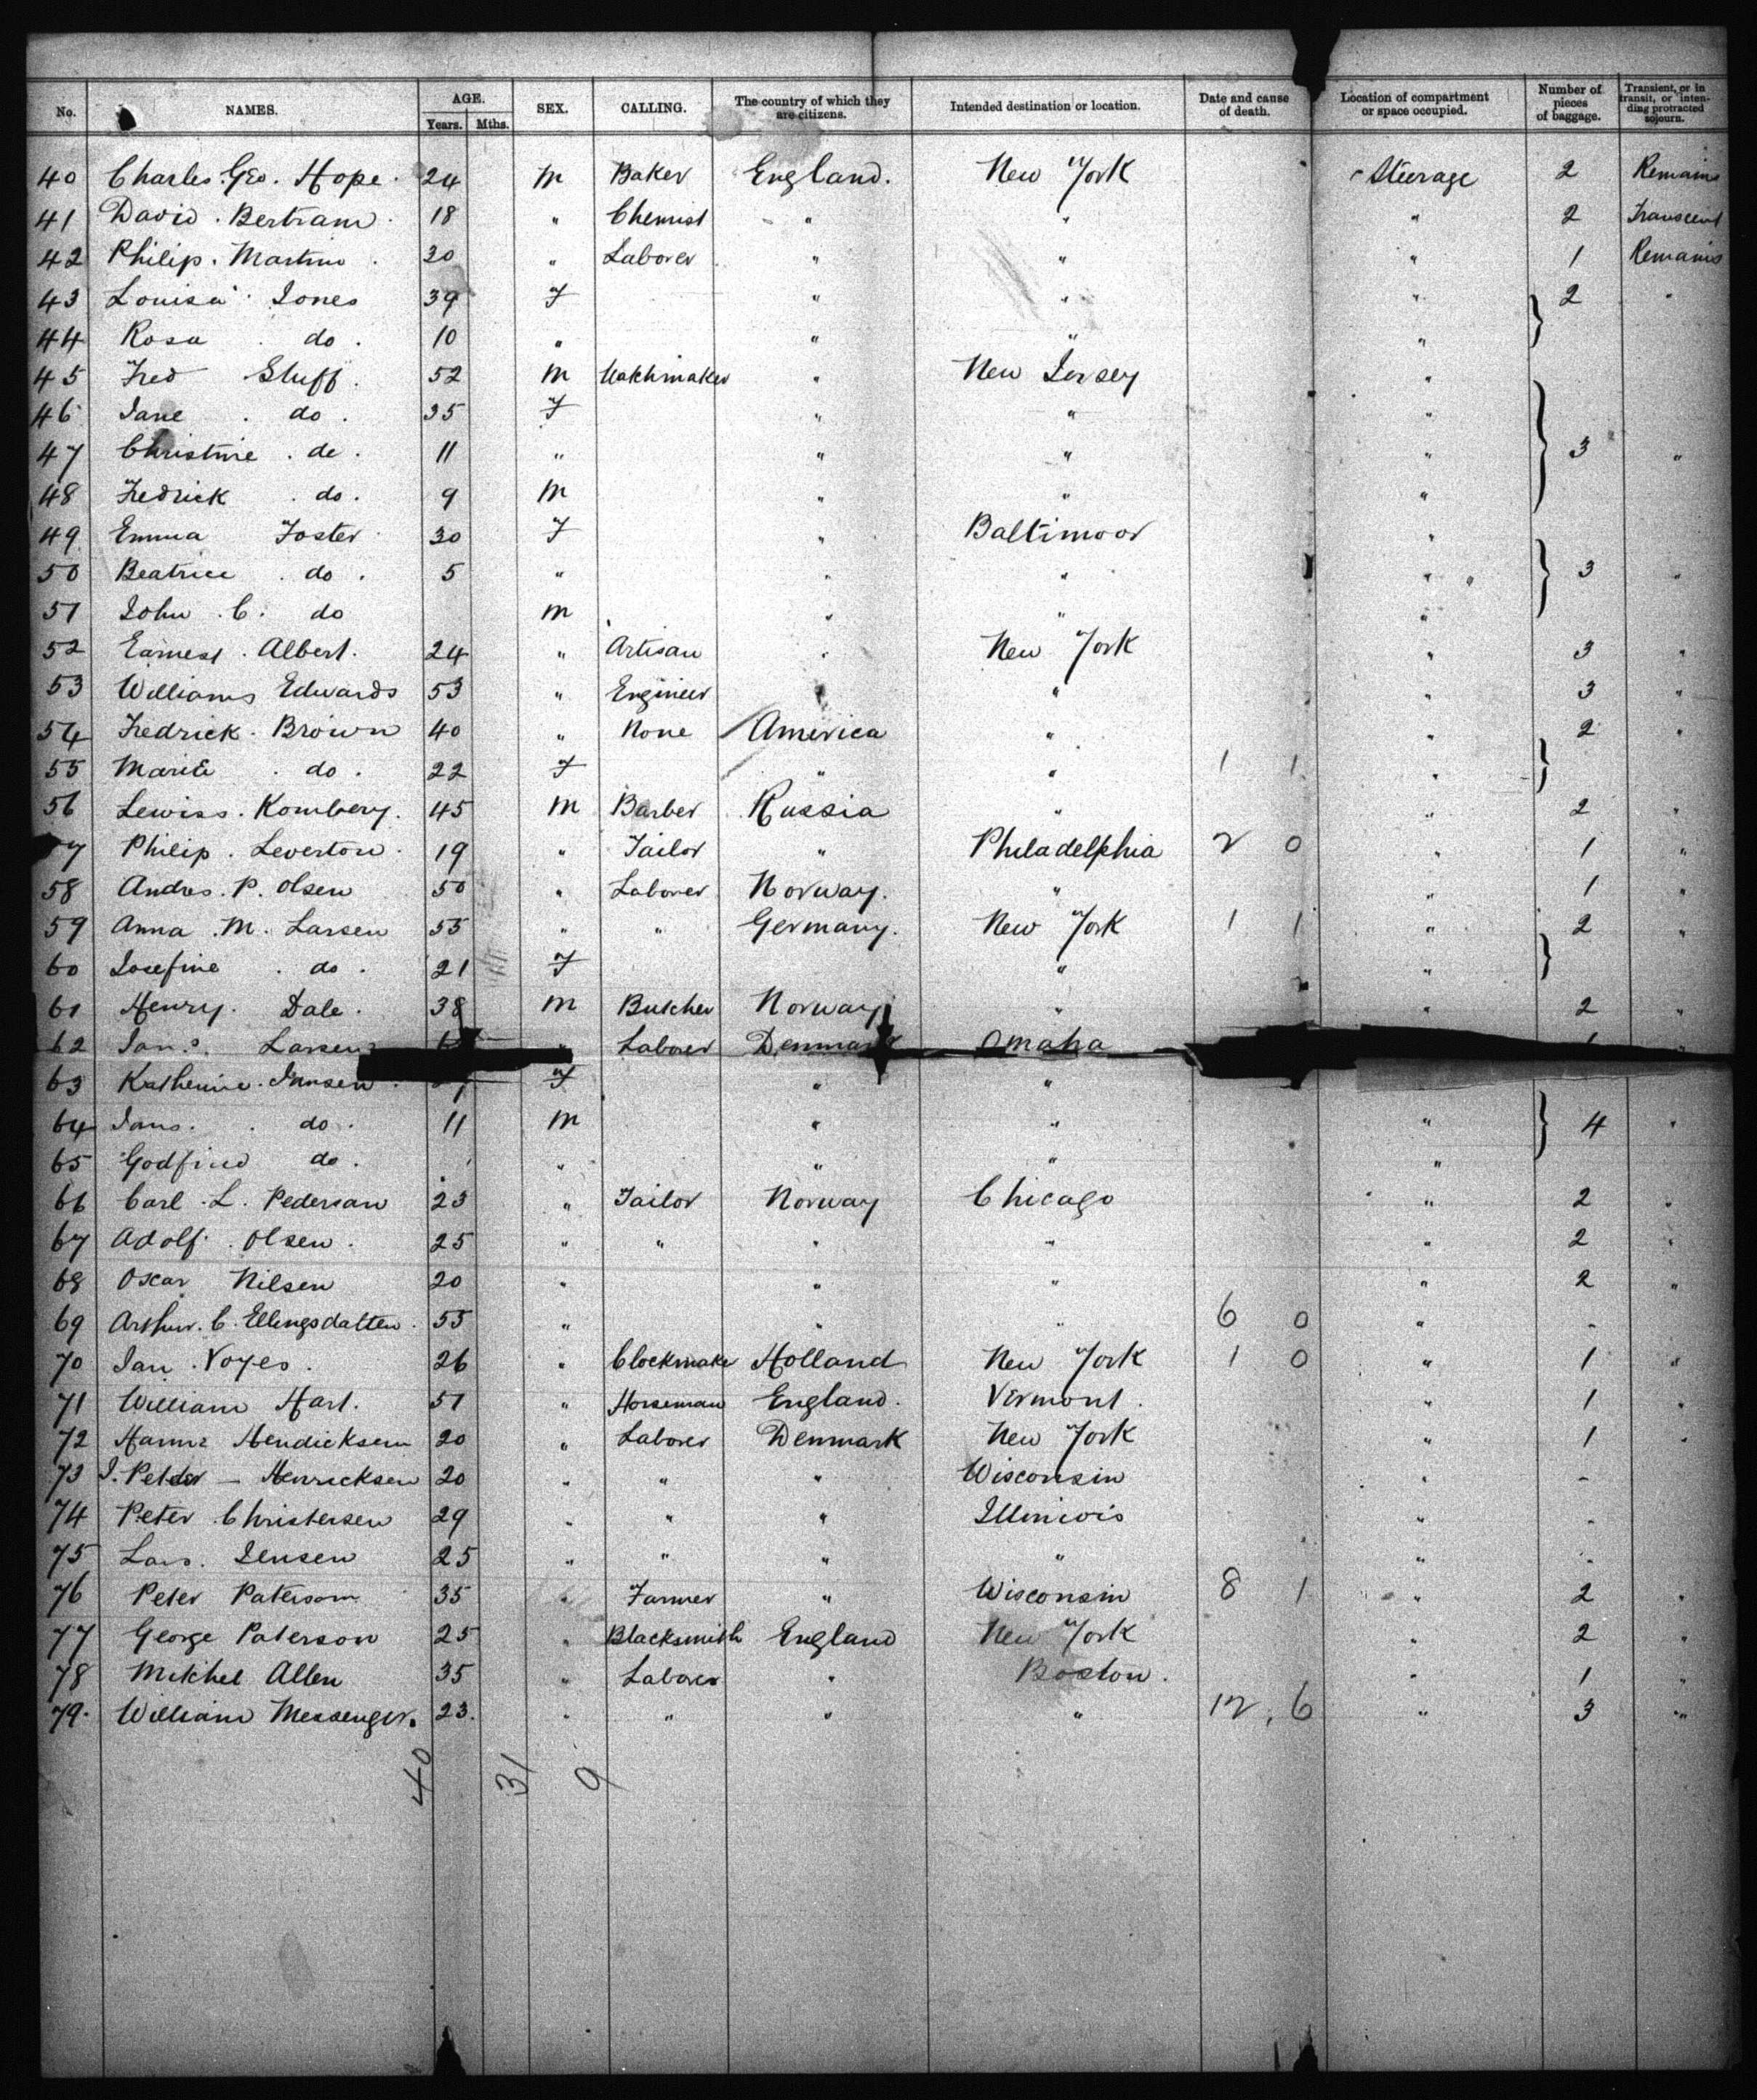 No. NAMES. AGE. Years. Mths. SEX. CALLING. The country of which they are citizens. Intended destination or location. Date and cause of death. Location of compartment or space occupied. Number of pieces of baggage. Transient, or in transit, or intending protracted sojourn.
40 Charles. Geo. Hope. 24 M Baker England. New York Steerage 2 Remains
41 David. Bertram. 18 " Chemist " " " 2 Transcent
42 Philip. Martino. 30 " Laborer " " " 1 Remains
43 Louisa Jones 39 F " " " 2 "
44 Rosa. do. 10 " " " "
45 Fred Stuff. 52 M Watchmaker " New Jersey "
46 Jane. do. 35 F " " "
47 Christine. de. 11 " " " " 3 "
48 Fedrick. do. 9 M " " "
49 Emma Foster 30 F " Baltimoor "
50 Beatrice. do. 5 " " " " 3 "
51 John. C. do M " " "
52 Earnest. Albert. 24 " Artisan " New York " 3 "
53 Williams Edwards 53 " Engineer " " " 3 "
54 Fredrick. Brown 40 " None America " " 2 "
55 Marie. do. 22 F " " 1 1 "
56 Lewiss. Kombery. 45 M Barber Russia " " 2 "
7 Philip. Leverton. 19 " Tailor " Philadelphia 2 0 " 1 "
58 Andres. P. Olsen 50 " Laborer Norway. " " 1 "
59 Anna. M. Larsen 55 " " Germany. New York 1 1 " 2 "
60 Josefine. do. 21 F " "
61 Henry. Dale. 38 M Butcher Norway " " 2 "
62 Jans. Larsen Laborer Denmark Omaha
63 Katherine. Jansen. F " "
64 Jans. do. 11 M " " " 4 "
65 Godfried do. " " " "
66 Carl. L. Pedersan 23 " Tailor Norway Chicago " 2 "
67 Adolf. Olsen. 25 " " " " " 2 "
68 Oscar Nilsen 20 " " " " 2 "
69 Arthur. C. Ellingsdatten. 55 " " " 6 0 " -
70 Jan. Voyes. 26 " Clockmake Holland New York 1 0 " 1 "
71 William Hart. 51 " Horseman England. Vermont. " 1 "
72 Hendicksen 20 " Laborer Denmark New York " 1 "
73 J. Peter - Henricksen 20 " " " Wisconsin " -
74 Peter. Christersen 29 " " " Illiniois " -
75 Lars. Jensen 25 " " " " " -
76 Peter Paterson 35 " Farmer " Wisconsin 8 1 " 2 "
77 George Paterson 25 " Blacksmith England New York " 2 "
78 Mikhel Allen 35 " Laborer " Boston. " 1 "
79. William Messenger. 23. " " " " 12, 6 " 3 "
40 31 9